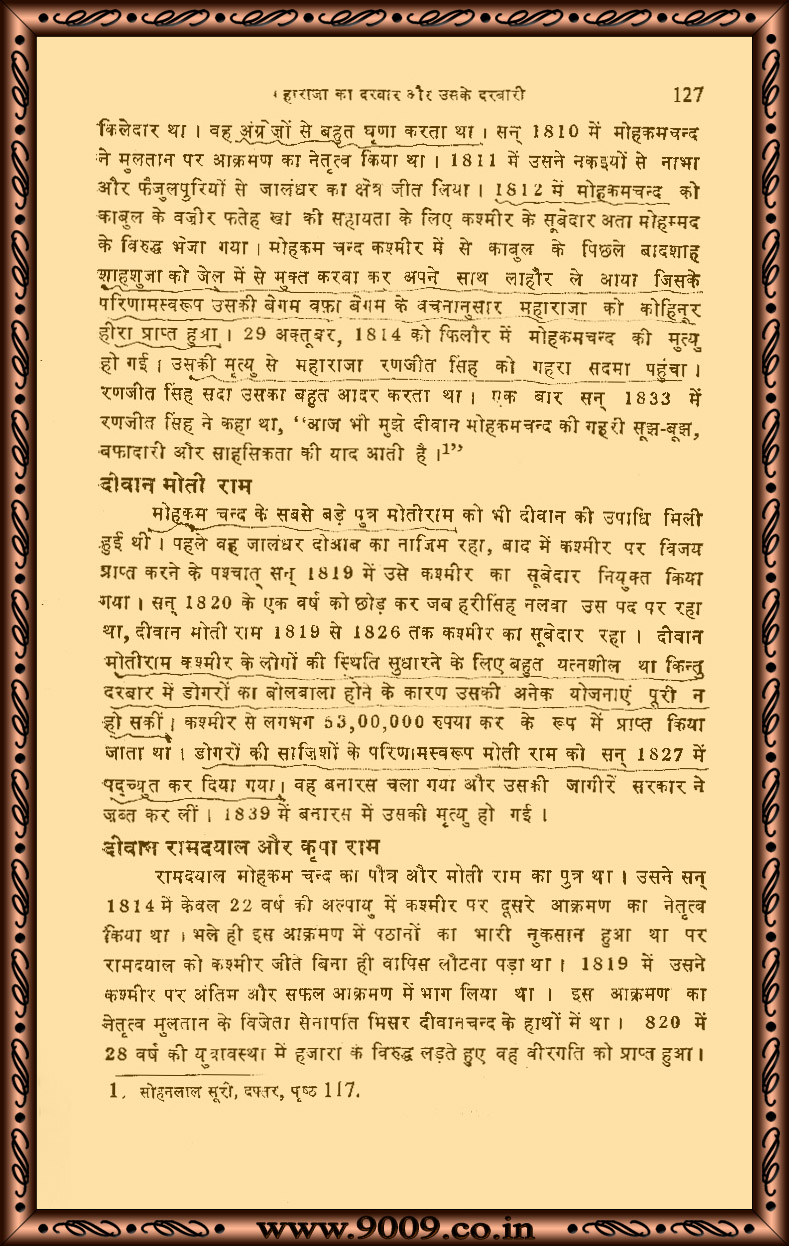 हाराजा का दरबार और उसके दरबारी 127
किलेदार था । वह अंग्रेज़ों से बहुत घृणा करता था । सन् 1810 में मोहकमचन्द
ने मुलतान पर आक्रमण का नेतृत्व किया था । 1811 में उसने नकइयों से नाभा
और फैजुलपुरियों से जालंधर का क्षेत्र जीत लिया । 1812 में मोहकमचन्द को
काबुल के वज़ीर फतेह खां की सहायता के लिए कश्मीर के सूबेदार अता मोहम्मद
के विरुद्ध भेजा गया । मोहकम चन्द कश्मीर में से काबुल के पिछले बादशाह
शाहशुजा को जेल में से मुक्त करवा कर अपने साथ लाहौर ले आया जिसके
परिणामस्वरूप उसकी बेगम वफ़ा बेगम के वचनानुसार महाराजा को कोहिनूर
हीरा प्राप्त हुआ । 29 अक्तूबर, 1814 को फिलौर में मोहकमचन्द की मृत्यु
हो गई । उसकी मृत्यु से महाराजा रणजीत सिंह को गहरा सदमा पहुंचा ।
रणजीत सिंह सदा उसका बहुत आदर करता था । एक बार सन् 1833 में
रणजीत सिंह ने कहा था, “आज भी मुझे दीवान मोहकमचन्द की गहरी सूझ-बूझ,
वफादारी और साहसिकता की याद आती है ।1”
दीवान मोती राम
मोहकम चन्द के सबसे बड़े पुत्र मोतीराम को भी दीवान की उपाधि मिली
हुई थी । पहले वह जालंधर दोआब का नाजिम रहा, बाद में कश्मीर पर विजय
प्राप्त करने के पश्चात् सन् 1819 में उसे कश्मीर का सूबेदार नियुक्त किया
गया । सन् 1820 के एक वर्ष को छोड़ कर जब हरीसिंह नलवा उस पद पर रहा
था, दीवान मोती राम 1819 से 1826 तक कश्मीर का सूबेदार रहा । दीवान
मोतीराम कश्मीर के लोगों की स्थिति सुधारने के लिए बहुत यत्नशील था किन्तु
दरबार में डोगरों का बोलबाला होने के कारण उसकी अनेक योजनाएं पूरी न
हो सकीं । कश्मीर से लगभग 53,00,000 रुपया कर के रूप में प्राप्त किया
जाता था । डोगरों की साज़िशों के परिणामस्वरूप मोती राम को सन् 1827 में
पद्च्युत कर दिया गया । वह बनारस चला गया और उसकी जागीरें सरकार ने
ज़ब्त कर लीं । 1839 में बनारस में उसकी मृत्यु हो गई ।
दीवान रामदयाल और कृपा राम
रामदयाल मोहकम चन्द का पौत्र और मोती राम का पुत्र था । उसने सन्
1814 में केवल 22 वर्ष की अल्पायु में कश्मीर पर दूसरे आक्रमण का नेतृत्व
किया था । भले ही इस आक्रमण में पठानों का भारी नुकसान हुआ था पर
रामदयाल को कश्मीर जीते बिना ही वापिस लौटना पड़ा था । 1819 में उसने
कश्मीर पर अंतिम और सफल आक्रमण में भाग लिया था । इस आक्रमण का
नेतृत्व मुलतान के विजेता सेनापति मिसर दीवानचन्द के हाथों में था । 820 में
28 वर्ष की युवावस्था में हजारा के विरुद्ध लड़ते हुए वह वीरगति को प्राप्त हुआ ।
1. सोहनलाल सूरी, दफ्तर, पृष्ठ 117.
www.9009.co.in